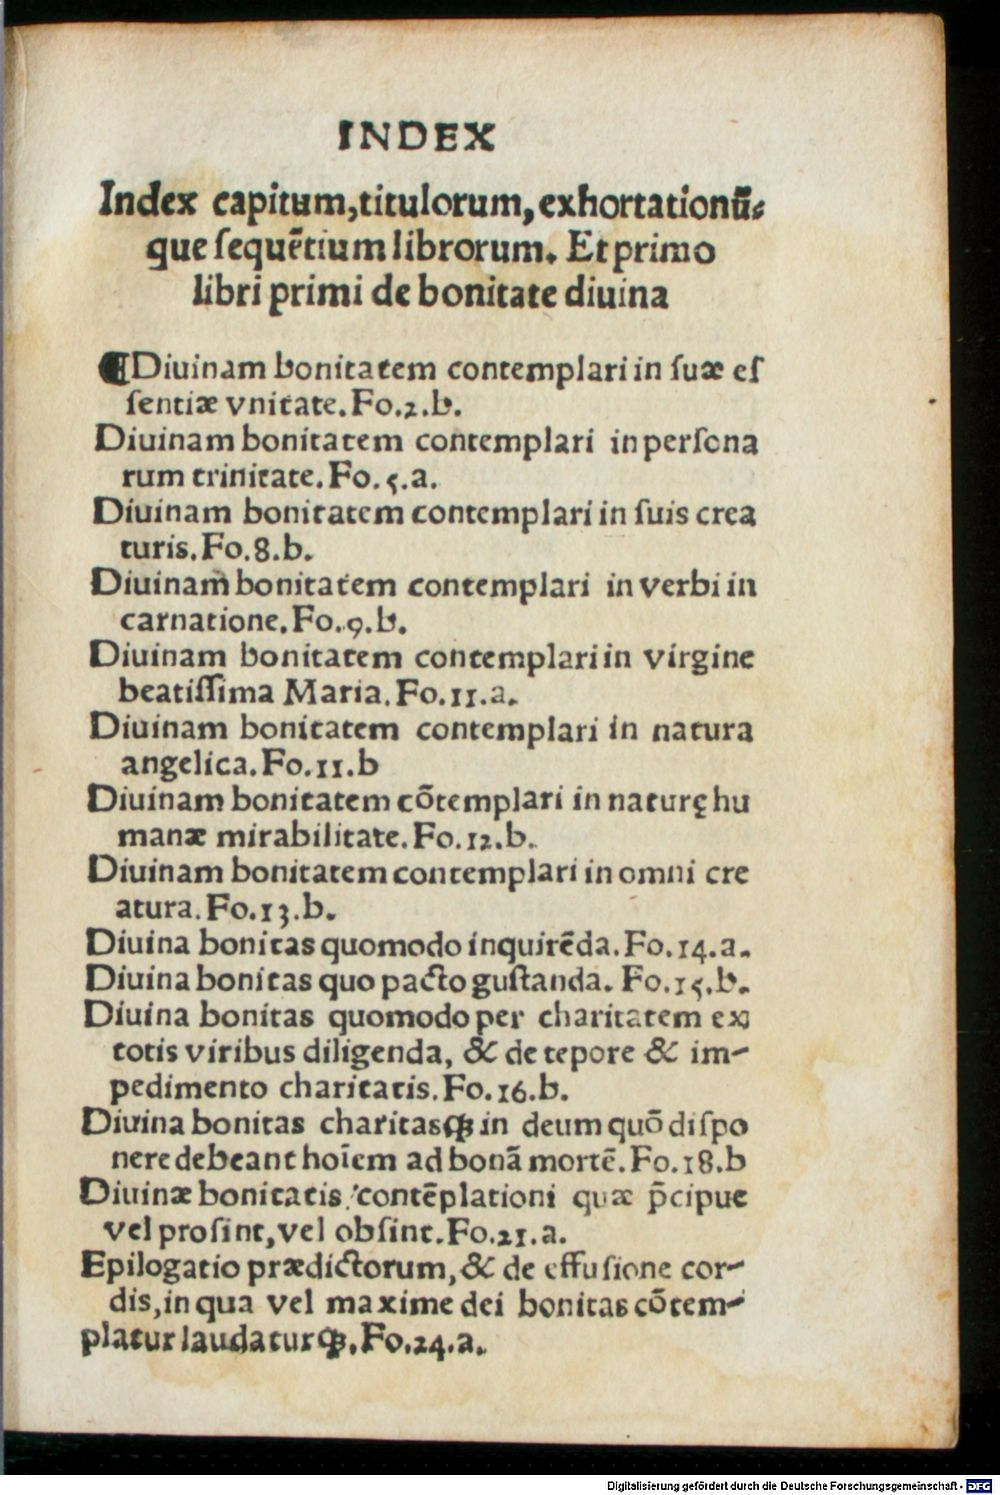 INDEX
Index capitum, titulorum, exhortationũ⸗
que ſequẽtium librorum. Et primo
libri primi de bonitate diuina
¶Diuinam bonitatem contemplari in ſuæ eſ
ſentiæ vnitate. Fo.2.b.
Diuinam bonitatem contemplari in perſona
rum trinitate. Fo.5.a.
Diuinam bonitatem contemplari in ſuis crea
turis. Fo.8.b.
Diuinam bonitatem contemplari in verbi in
carnatione. Fo.9.b.
Diuinam bonitatem contemplari in virgine
beatiſſima Maria. Fo.11.a.
Diuinam bonitatem contemplari in natura
angelica. Fo.11.b
Diuinam bonitatem cõtemplari in naturę hu
manæ mirabilitate. Fo.12.b.
Diuinam bonitatem contemplari in omni cre
atura. Fo.13.b.
Diuina bonitas quomodo inquirẽda. Fo.14.a.
Diuina bonitas quo pacto guſtanda. Fo.15.b.
Diuina bonitas quomodo per charitatem ex
totis viribus diligenda, & de tepore & im-
pedimento charitatis. Fo.16.b.
Diuina bonitas charitasq̃ in deum quõ diſpo
nere debeant hoĩem ad bonã mortẽ. Fo.18.b
Diuinæ bonitatis contẽplationi quæ p̃cipue
vel proſint, vel obſint. Fo.21.a.
Epilogatio prædictorum, & de effuſione cor-
dis, in qua vel maxime dei bonitas cõtem-
platur laudaturq̃. Fo.24.a.
Digitalisierung gefördert durch die Deutsche Forschungsgemeinschaft - DFG